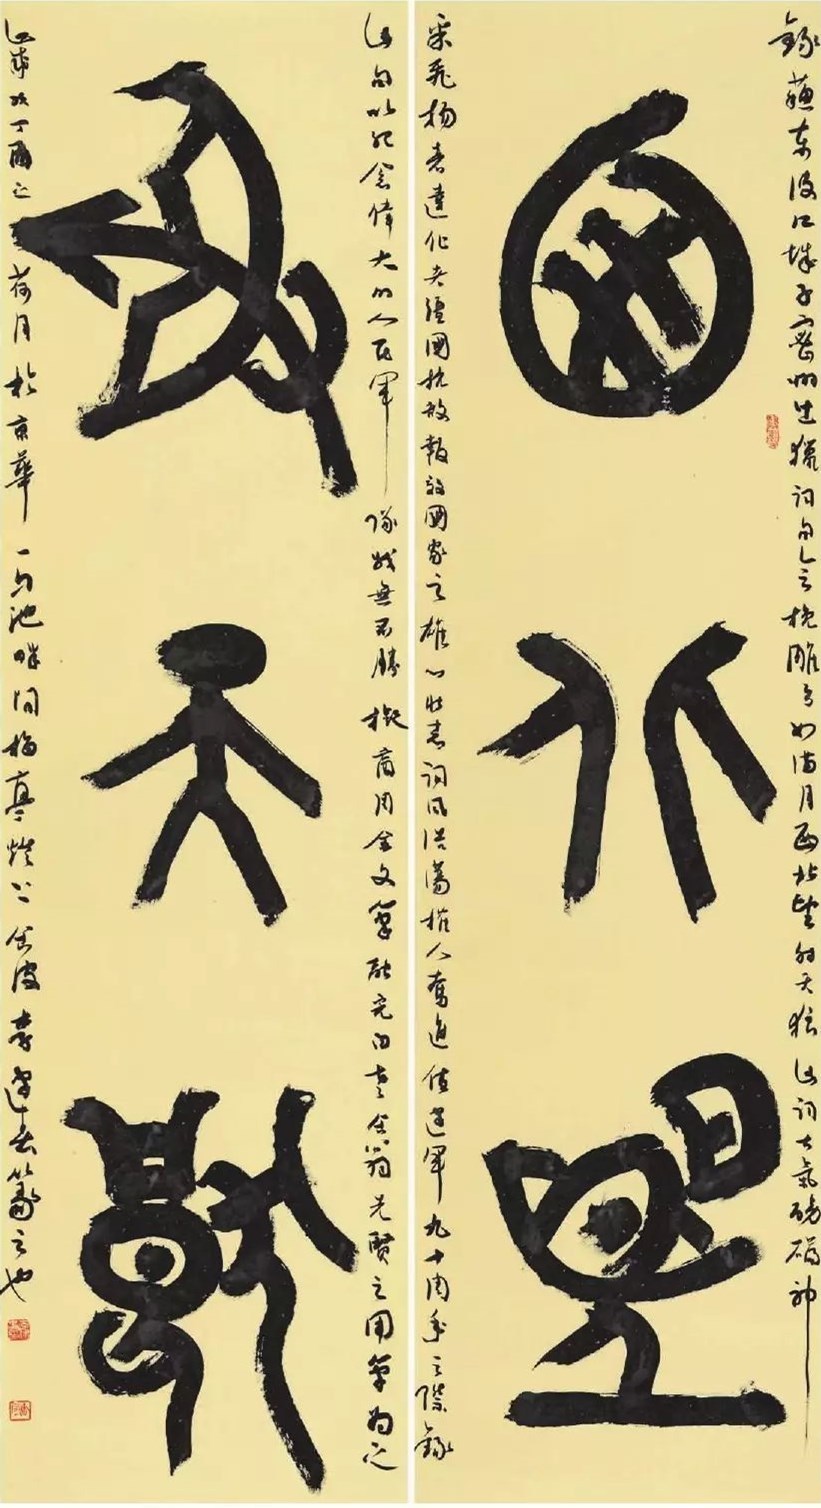 錄蘇東坡江城子密州出獵詞句會挽雕弓如滿月西北望射天狼此詞大氣磅礴神
西北望
采飛揚表達作者國抗敵報效國家之雄心壯志詞風浩蕩催人奮進值建軍九十周年之際錄
此句以紀念偉大的人民軍隊戰無不勝擬商周金文筆融先賢之用筆為之
射天狼
丁酉之荷月於京華一勺池畔問梅亭燈下金波李逢春篆之也